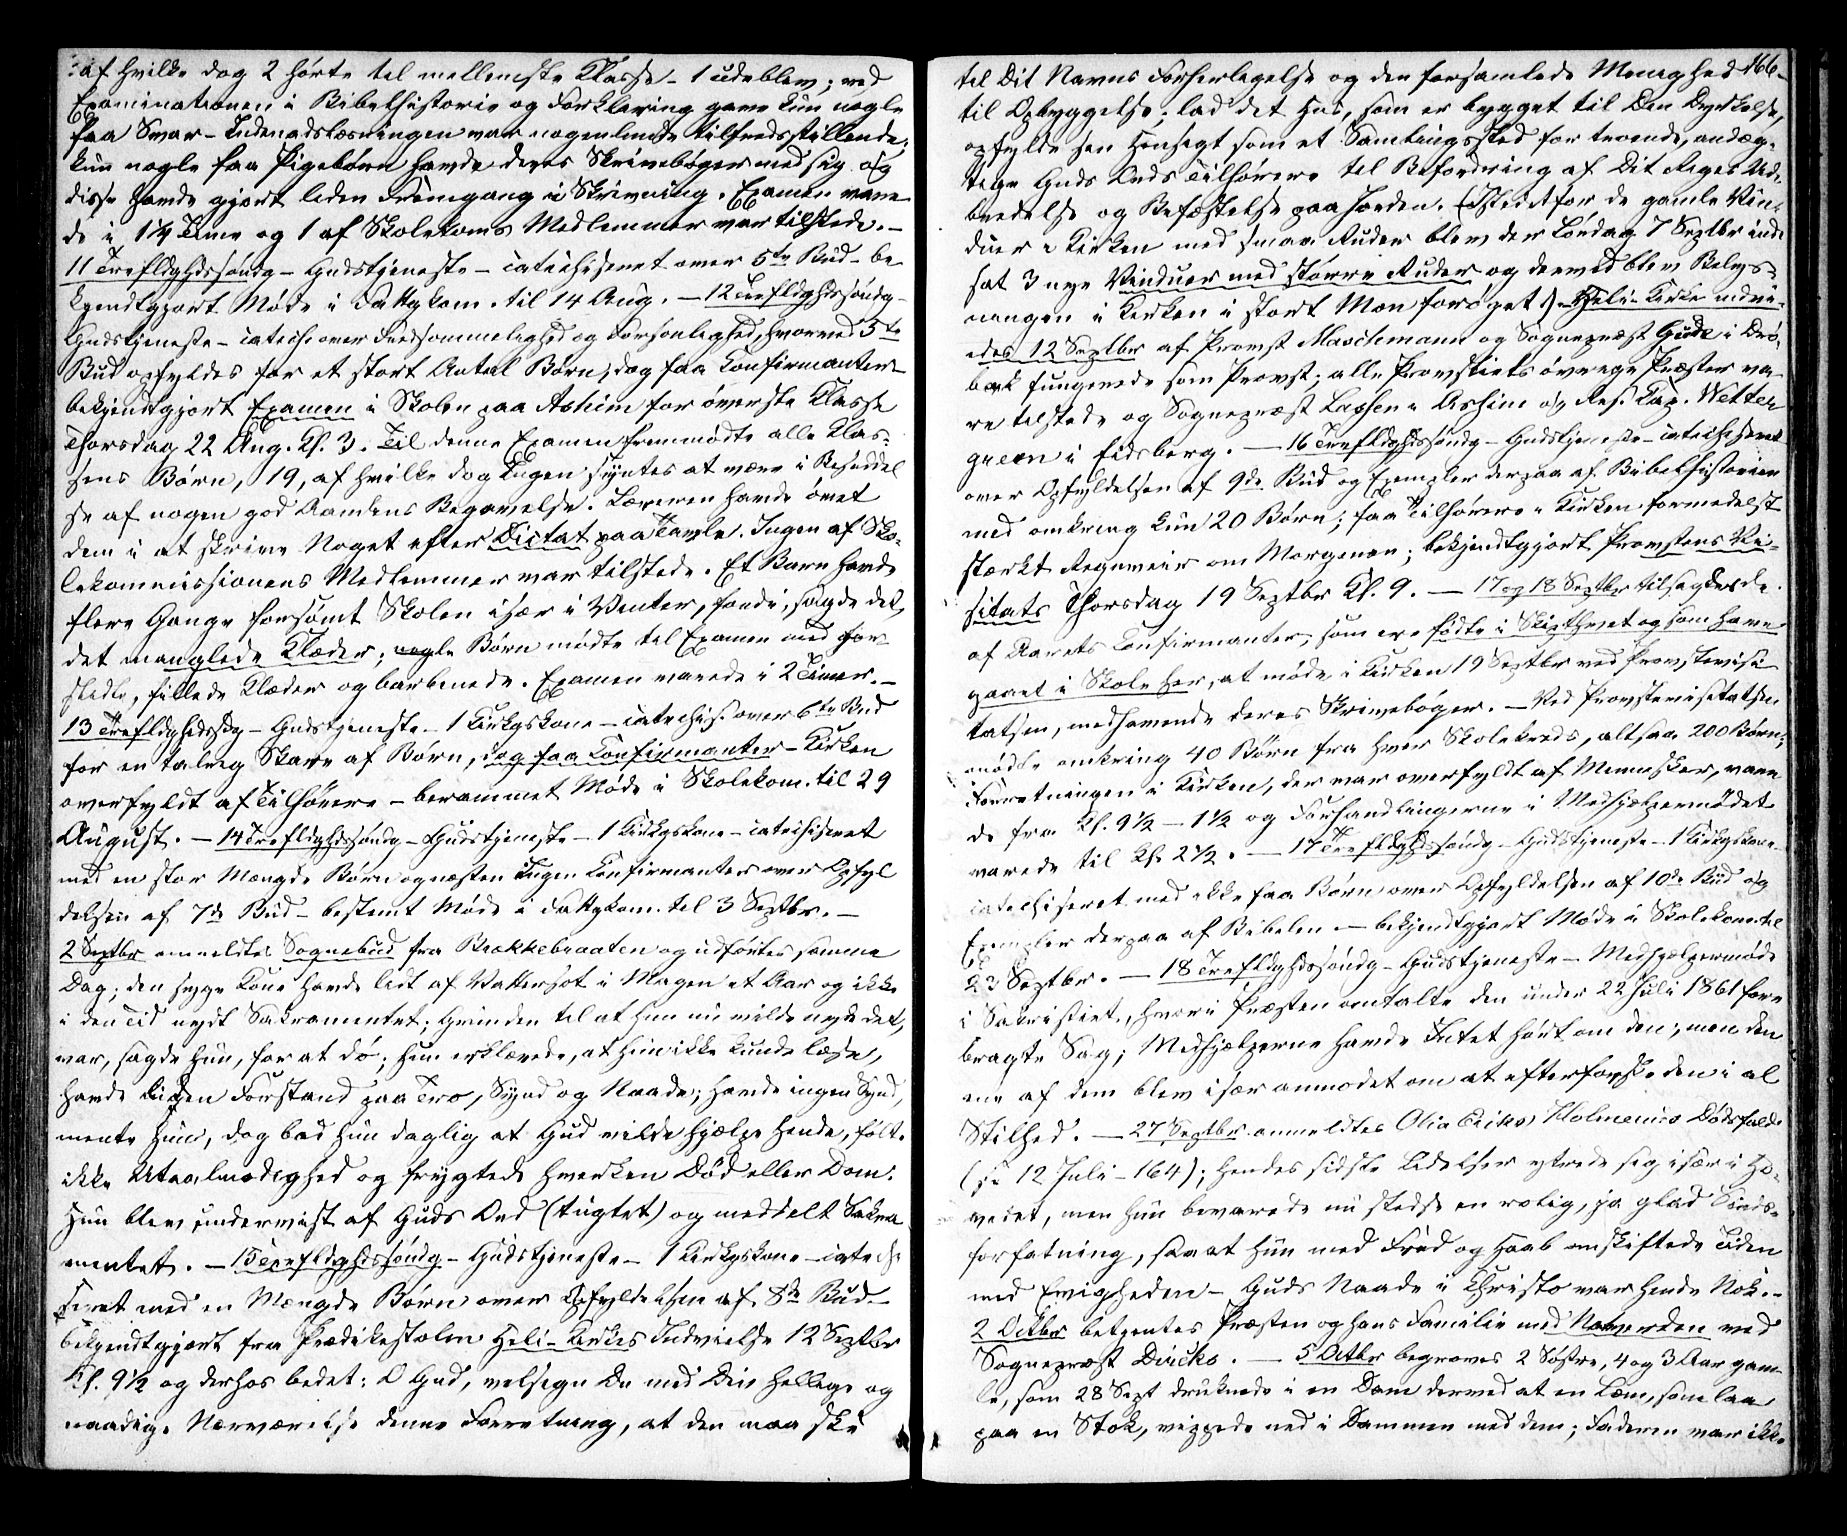 af hvilke dog 2 hörte til mellemste Klasse – 1 udeblev; ved
Examinationen i Bibelhistorie og Forklaring gave kun nogle
faa Svar – Indenadslæsningen var nogenlunde tilfredsstillende;
kun nogle faa Pigebörn havde deres Skrivebøger med sig og
disse havde gjort liden Fremgang i Skrivning. Examen vare
de i 1¼ Time og 1 af Skolekoms Medlemmer var tilstede. –
11 Trefldghdssöndg – Gudstjeneste – catechiseret over 5te Bud – be
kjendtgjort Möde i Fattgkom. til 14 Aug. – 12 Trefldghdssöndg –
Gudstjeneste – catech. over Fredsommelighed og Forsonlighed, hvorved 5te
Bud opfyldes for et stort Antal Börn, dog faa Confirmanter –
bekjendtgjort Examen i Skolen paa Askim for överste Klasse
Thorsdag 22 Aug. Kl. 3. Til denne Examen fremmödte alle Klas-
sens Börn, 19, af hvilke dog Ingen syntes at være i Besiddel
se af nogen god Aandens Begavelse. Læreren havde övet
dem i at skrive Noget efter Dictat paa Tavle. Ingen af Sko-
lekommissionens Medlemmer var tilstede. Et Barn havde
flere Gange forsömt Skolen især i Vinter, fordi, sagde det,
det manglede Klæder; nogle Börn mödte til Examen med for
slidte, fillede Klæder og barbenede. Examen varede i 2 Timer. –
13 Trefldghedssdg – Gudstjeneste – 1 Kirkgskone – catechis. over 6te Bud
for en talrig Skare af Börn, dog faa Confirmanter – Kirken
overfyldt af Tilhörere – berammet Möde i Skolekom. til 29
August. – 14 Trefldghdssöndg – Gudstjeneste – 1 Kirkgskone – catechiseret
med en stor Mængde Börn og næsten Ingen Confirmanter over Opfyl
delsen af 7de Bud – bestemt Möde i Fattgkom. til 3 Septbr. –
2 Septbr anmeldtes Sognebud fra Brækkebraaten og udförtes samme
Dag; den syge Kone havde lidt af Vattersot i Magen et Aar og ikke
i den Tid nydt Sakramentet; Grunden til at hun nu vilde nyde det,
var, sagde hun, for at dö; hun erklærede, at hun ikke kunde læse,
havde liden Forstand paa Tro, Synd og Naade; havde ingen Synd,
mente hun, dog bad hun daglig at Gud vilde hjælpe hende, fölte
ikke Utaalmodighed og frygtede hverken Död eller Dom.
Hun blev undervist af Guds Ord (tugtet) og meddelt Sakra
mentet. – 15 Trefldghdssöndg – Gudstjeneste – 1 Kirkgskone – catechi
seret med en Mængde Börn over Opfyldelsen af 8de Bud –
bekjendtgjort fra Prædikestolen Heli-Kirkes Indvielse 12 Septbr
Kl. 9½ og derhos bedet: O Gud, velsign Du med Din hellige og
naadige Nærværelse denne Forretning, at den maa ske
166 –
til Dit Navns Forherligelse og den forsamlede Menighed
til Opbyggelse; lad det Hus, som er bygget til Din Dyrkelse,
opfylde sin Hensigt som et Samlingssted for troende, andæg-
tige Guds Ords Tilhörere til Befordring af Dit Riges Ud-
bredelse og Befæstelse paa Jorden. (Istedetfor de gamle Vin-
duer i Kirken med smaa Ruder blev der Löndag 7 Septbr ind
sat 3 nye Vinduer med större Ruder og derved blev Belys-
ningen i Kirken i stort Mon foröget) – Heli-Kirke indvi-
edes 12 Septbr af Provst Maschmann og Sognepræst Gude i Drö-
bak fungerede som Provst; alle Provstiets övrige Præster va-
re tilstede og Sognepræst Lassen i Askim og Res. Kap. Wetter
green i Eidsberg. – 16 Trefldghdssöndg – Gudstjeneste – catechiseret
over Opfyldelsen af 9de Bud og Exempler derpaa af Bibelhistorien
med omkring kun 20 Börn; faa Tilhörere i Kirken formedelst
stærkt Regnveir om Morgenen; bekjendtgjort Provstens Vi-
sitats Thorsdag 19 Septbr Kl. 9. – 17 og 18 Septbr tilsagdes de
af Aarets Confirmanter, som ere födte i Skipthvet og som have
gaaet i Skole her, at möde i Kirken 19 Septbr ved Provstevisi
tatsen, medhavende deres Skrivebøger. – Ved Provstevisitatsen
mödte omkring 40 Börn fra hver Skolekreds, altsaa 200 Börn;
Forretningen i Kirken, der var overfyldt af Mennesker, vare
de fra Kl. 9½ – 1½ og Forhandlingerne i Medhjælpermödet
varede til Kl. 2½. – 17 Trefldghdssöndg – Gudstjeneste – 1 Kirkgskone –
catechiseret med ikke faa Börn over Opfyldelsen af 10de Bud og
Exempler derpaa af Bibelen – bekjendtgjort Möde i Skolekom. til
23 Septbr. – 18 Trefldghdssöndg – Gudstjeneste – Medhjælpermöde
i Sakristiet, hvori Præsten omtalte den under 22 Juli 1861 fore
bragte Sag; Medhjælperne havde Intet hört om den; men den
ene af dem blev især anmodet om at efterforske den i al
Stilhed. – 27 Septbr anmeldtes Olia Eriksd. Holmenies Dödsfald
(se 12 Juli – 164); hendes sidste Lidelser ytrede sig især i Ho-
vedet, men hun bevarede nu stedse en rolig, ja glad Sinds-
forfatning, saa at hun med Fred og Haab ombyttede Tiden
med Evigheden – Guds Naade i Christo var hende Nok. –
2 Octbr betjentes Præsten og hans Familie med Nadverden ved
Sognepræst Diricks. – 5 Octbr begroves 2 Söstre, 4 og 3 Aar gam-
le, som 28 Sept druknede i en Dam derved at en Læm, som laa
paa en Stok, vippede ned i Dammen med dem; Faderen var ikke